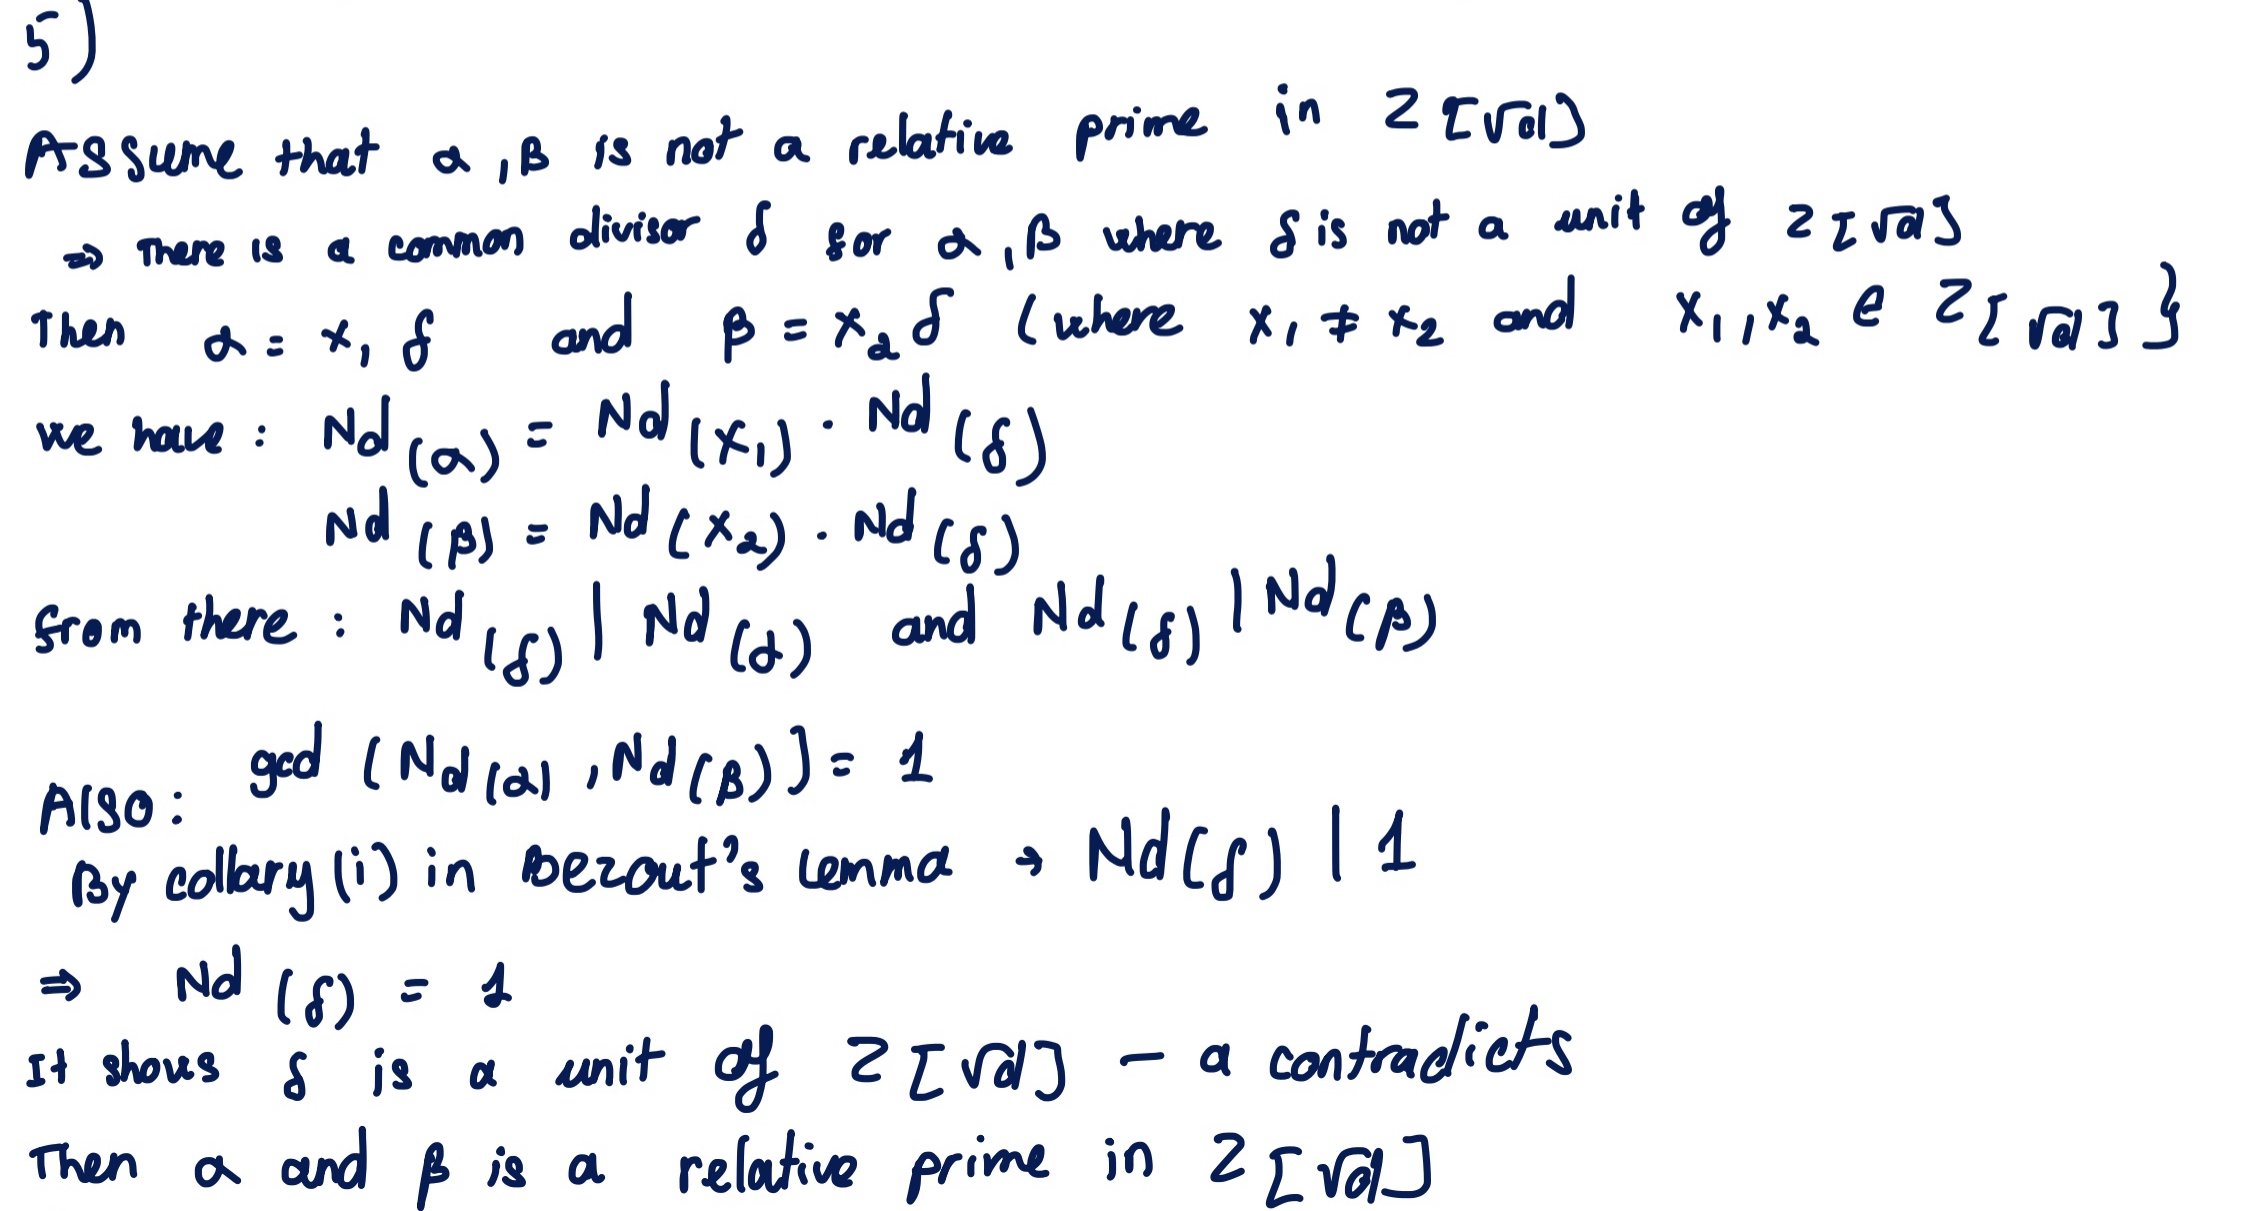 5)
Assume that α, β is not a relative prime in Z[√d]
⇒ There is a common divisor δ for α, β where δ is not a unit of Z[√d]
Then α = x₁ δ and β = x₂ δ (where x₁ ≠ x₂ and x₁, x₂ e Z[√d]}
we have : Nd(α) = Nd(x₁) · Nd(δ)
Nd(β) = Nd(x₂) · Nd(δ)
from there : Nd(δ) | Nd(α) and Nd(δ) | Nd(β)
Also : gcd (Nd(α), Nd(β)) = 1
By collary (i) in Bezout's lemma → Nd(δ) | 1
⇒ Nd(δ) = 1
It shows δ is a unit of Z[√d] – a contradicts
Then α and β is a relative prime in Z[√d]